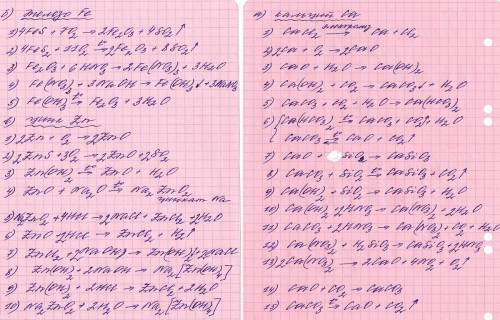 б) железо Fe
1) 4FeS + 7O₂ → 2Fe₂O₃ + 4SO₂↑
2) 4FeS₂ + 11O₂ → 2Fe₂O₃ + 8SO₂↑
3) Fe₂O₃ + 6HNO₃ → 2Fe(NO₃)₃ + 3H₂O
4) Fe(NO₃)₃ + 3NaOH → Fe(OH)₃↓ + 3NaNO₃
5) Fe(OH)₃ → Fe₂O₃ + 3H₂O
в) цинк Zn
1) 2Zn + O₂ → 2ZnO
2) 2ZnS + 3O₂ → 2ZnO + 2SO₂
3) Zn(OH)₂ → ZnO + H₂O
4) ZnO + Na₂O → Na₂ZnO₂
цинкат Na
5) Na₂ZnO₂ + 4HCl → 2NaCl + ZnCl₂ + 2H₂O
6) ZnO + 2HCl → ZnCl₂ + H₂↑
7) ZnCl₂ + 2NaOH → Zn(OH)₂ + 2NaCl
8) Zn(OH)₂ + 2NaOH → Na₂[Zn(OH)₄]
9) Zn(OH)₂ + 2HCl → ZnCl₂ + 2H₂O
10) Na₂ZnO₂ + 2H₂O → Na₂[Zn(OH)₄]
а) кальций Ca
1) CaCl₂ → Ca + Cl₂
2) 2Ca + O₂ → 2CaO
3) CaO + H₂O → Ca(OH)₂
4) Ca(OH)₂ + CO₂ → CaCO₃↓ + H₂O
5) CaCO₃ + CO₂ + H₂O → Ca(HCO₃)₂
6) Ca(HCO₃)₂ → CaCO₃ + CO₂↑ + H₂O
CaCO₃ → CaO + CO₂↑
7) CaO + SiO₂ → CaSiO₃
8) CaCO₃ + SiO₂ → CaSiO₃ + CO₂↑
9) Ca(OH)₂ + SiO₂ → CaSiO₃ + H₂O
10) Ca(OH)₂ + 2HNO₃ → Ca(NO₃)₂ + 2H₂O
11) CaCO₃ + 2HNO₃ → Ca(NO₃)₂ + CO₂ + H₂O
12) Ca(NO₃)₂ + H₂SiO₃ → CaSiO₃ + 2HNO₃
13) 2Ca(NO₃)₂ → 2CaO + 4NO₂ + O₂↑
14) CaO + CO₂ → CaCO₃
15) CaCO₃ → CaO + CO₂↑